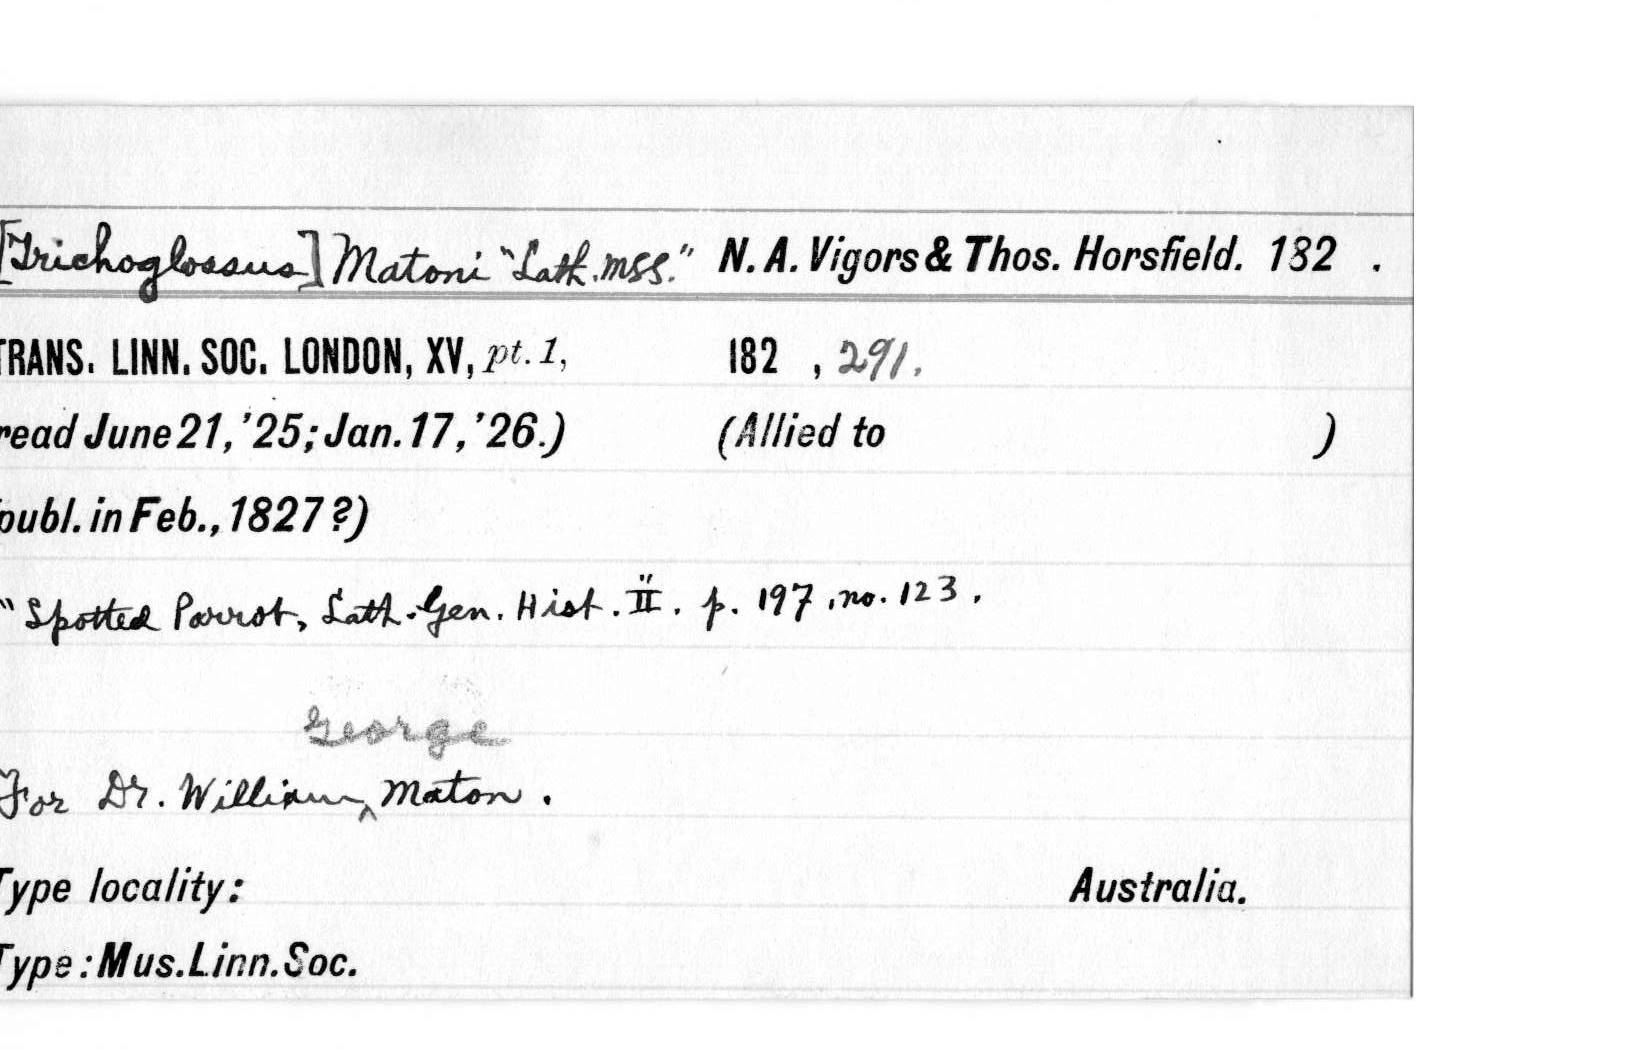 [Trichoglossus] Matoni "Lath. mss." N. A. Vigors & Thos. Horsfield. 182 .
TRANS. LINN. SOC. LONDON, XV, pt. 1, 182 , 291.
read June 21, '25; Jan. 17, '26.) (Allied to )
publ. in Feb., 1827?)
"Spotted Parrot, Lath. Gen. Hist. II". p. 197, no. 123.
George
For Dr. William ^ Maton.
Type locality: Australia.
Type: Mus. Linn. Soc.